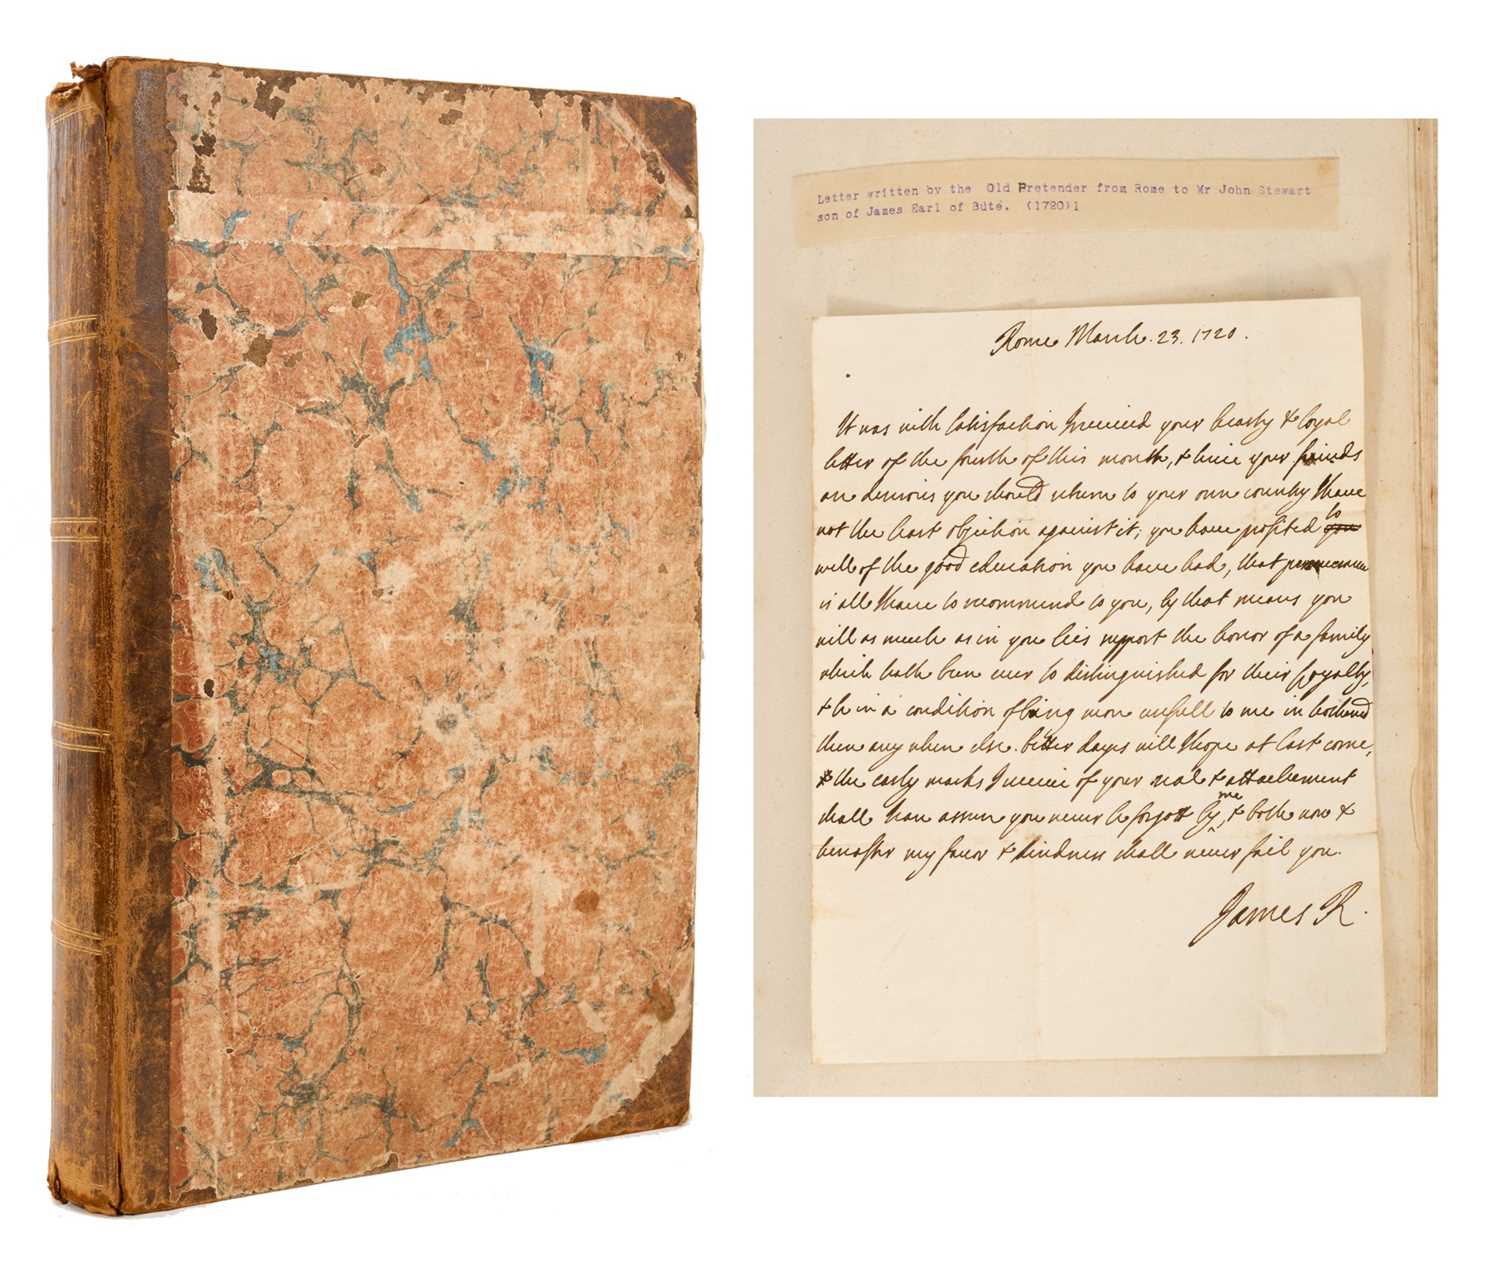 Letter written by the Old Pretender from Rome to Mr John Stewart
son of James Earl of Bute. (1720)1
Rome March. 23. 1720.
It was with satisfaction I received your hearty & loyal
letter of the fourth of this month, & since your friends
are desirous you should return to your own country I have
not the least objection against it; you have profited so you
well of the good education you have had, that perseverance
is all I have to recommend to you, by that means you
will as much as in you lies support the honor of a family
which hath been ever so distinguished for their loyalty,
& be in a condition of being more usefull to me in Scotland
then any where else. better days will I hope at last come,
& the early marks I receive of your zeal & attachement
shall I can assure you never be forgott by me, & both now &
hereafter my favor & kindness shall never fail you.
James R.